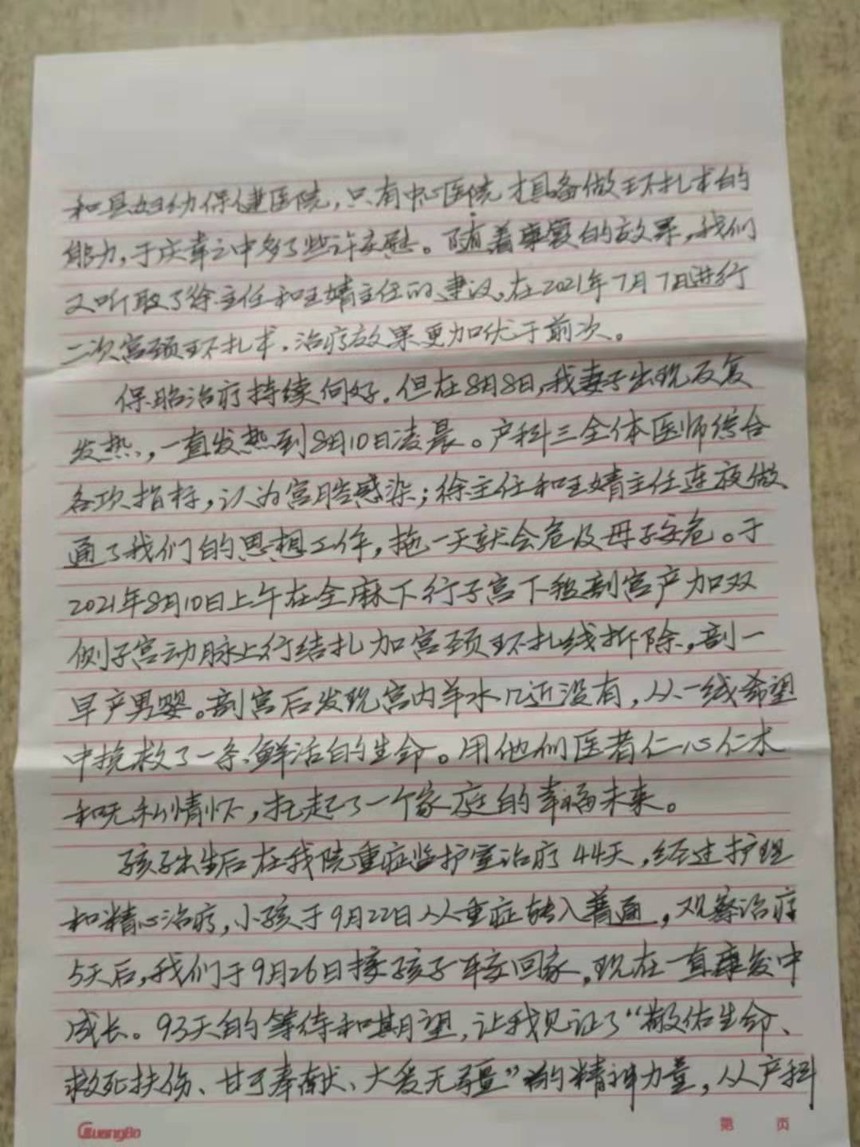 和县妇幼保健医院，只有中心医院才具备做环扎术的
能力，于庆幸之中多了些许安慰。随着康复的效果，我们
又听取了徐主任和王婧主任的建议，在2021年7月7日进行
二次宫颈环扎术。治疗效果更加优于前次。
保胎治疗持续向好。但在8月8日，我妻子出现反复
发热，一直发热到8月10日凌晨。产科三全体医师综合
各项指标，认为宫腔感染；徐主任和王婧主任连夜做
通了我们的思想工作，拖一天就会危及母子安危。于
2021年8月10日上午在全麻下行子宫下段剖宫产加双
侧子宫动脉上行结扎加宫颈环扎线拆除，剖一
早产男婴。剖宫后发现宫内羊水几近没有，从一线希望
中挽救了一条鲜活的生命。用他们医者仁心仁术
和无私情怀，托起了一个家庭的幸福未来。
孩子出生后在我院重症监护室治疗44天，经过护理
和精心治疗，小孩于9月22日从重症转入普通，观察治疗
5天后，我们于9月26日接孩子回家。现在一直康复中
成长。93天的等待和期望，让我见证了“敬佑生命、
救死扶伤、甘于奉献、大爱无疆”的精神力量，从产科
GuangBo 第 页